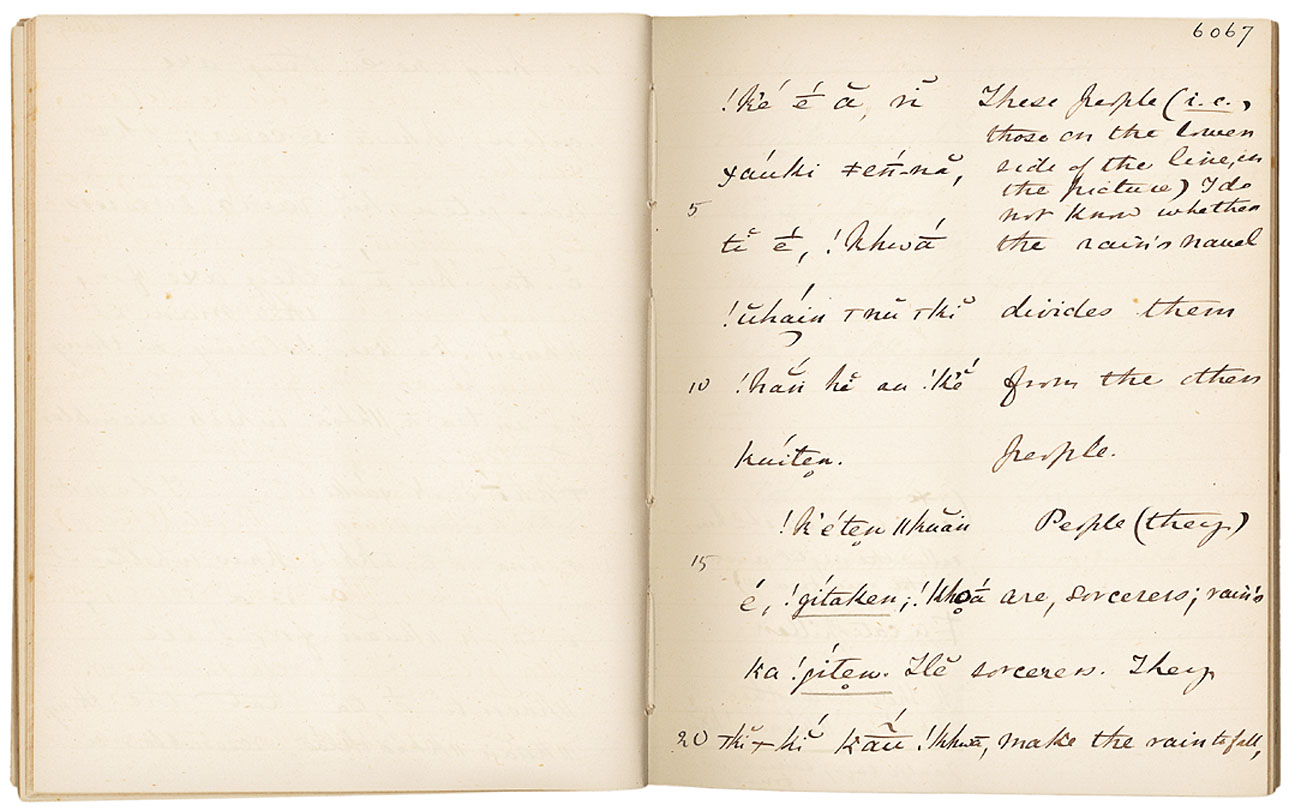 6067
!k'é é ā, n̆
These people (i.e.,
those on the lower
ɤáuki ǂeń-nă,
side of the line, in
the picture) I do
5
not know whether
tĭ é, !khwá
the rain's navel
!ŭháin
divides them
10 !hăn hĕ au !k'é
from the other
kuítẹn.
people.
!k'étẹn ǁkuăn
People (they)
15
é, !gítakẹn; !khwá
are, sorcerers; rain's
ka !gítẹn. Hĕ
sorcerers. They
20
kāū !khwā,
make the rain to fall,